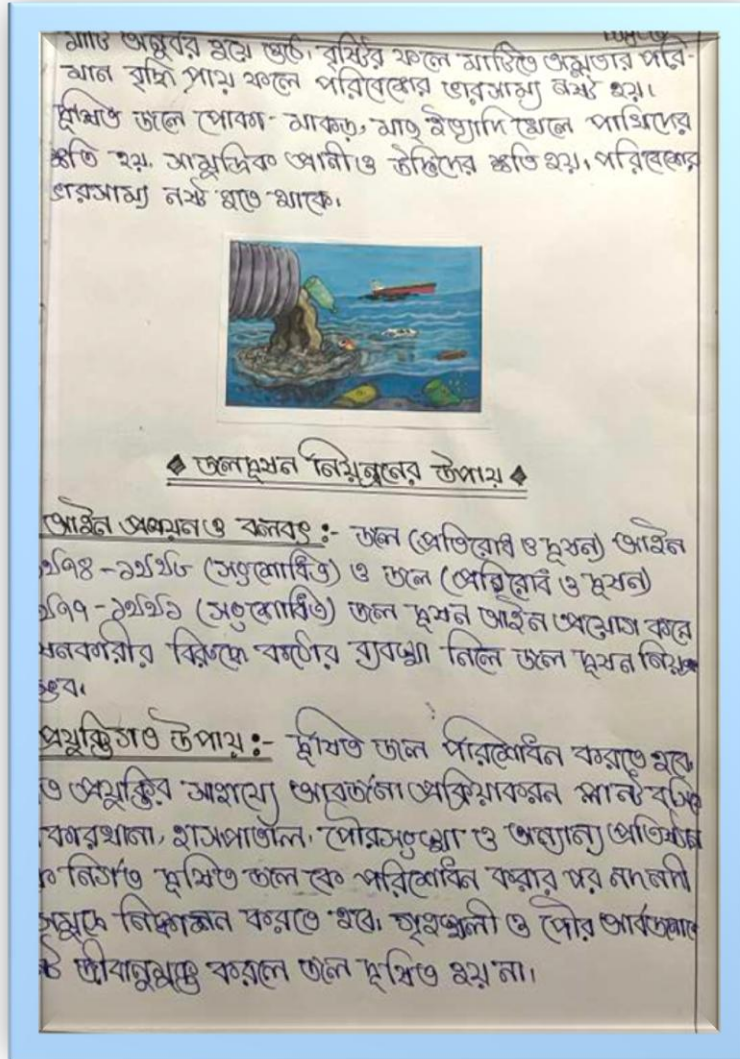 মাটি অনুর্বর হয়ে ওঠে, বৃষ্টির ফলে মাটিতে অম্লতার পরি-
মান বৃদ্ধি পায় ফলে পরিবেশের ভারসাম্য নষ্ট হয়।
দূষিত জলে পোকা-মাকড়, মাছ ইত্যাদি খেলে পাখিদের
ক্ষতি হয়, সামুদ্রিক প্রানী ও উদ্ভিদের ক্ষতি হয়, পরিবেশের
ভারসাম্য নষ্ট হতে থাকে।
◆ জলদূষন নিয়ন্ত্রনের উপায় ◆
আইন প্রণয়ন ও বলবৎ :- জল (প্রতিরোধ ও দূষন) আইন
১৯৭৪-১৯৮৮ (সংশোধিত) ও জল (প্রতিরোধ ও দূষন)
১৯৭৭-১৯৯১ (সংশোধিত) জল দূষন আইন প্রয়োগ করে
ষনকারীর বিরুদ্ধে কঠোর ব্যবস্থা নিলে জল দূষন নিয়ন্ত্র
ম্ভব।
প্রযুক্তিগত উপায় :- দূষিত জল পরিশোধন করতে হবে,
ত প্রযুক্তির সাহায্যে আবর্জনা প্রক্রিয়াকরন প্লান্ট বসিয়ে
কারখানা, হাসপাতাল, পৌরসংস্থা ও অন্যান্য প্রতিষ্ঠান
ক নির্গত দূষিত জল কে পরিশোধন করার পর নদনদী
সমুদ্রে নিষ্কাশন করতে হবে, গৃহস্থলী ও পৌর আবর্জনাকে
জীবানুমুক্ত করলে জল দূষিত হয় না।